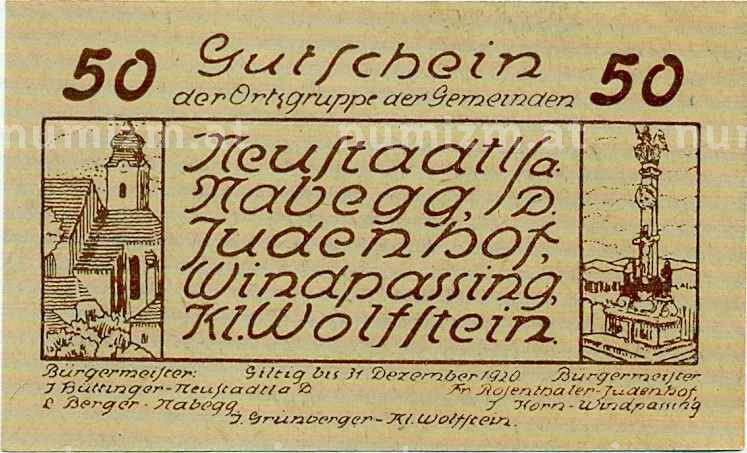 50 Gutschein 50
der Ortsgruppe der Gemeinden
Neustadtl a.
Nabegg, D.
Judenhof,
Windpassing,
Kl. Wolfstein.
Bürgermeister: Giltig bis 31 Dezember 1920 Bürgermeister
J Hüttinger-Neustadtl a D. Fr. Rosenthaler-Judenhof,
L Berger - Nabegg J. Korn-Windpassing
J. Grünberger-Kl. Wolfstein.
numizm.at numizm.at